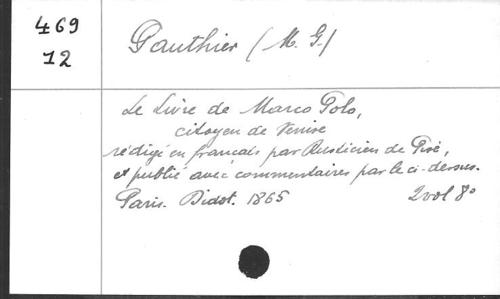 469
12
Gauthier (M. G.)
Le Livre de Marco Polo,
citoyen de Venise
rédigé en francais par Rusticien de Pise,
et publié avec commentaires par le ci-dessus.
Paris. Didot. 1865 2 vol 8º